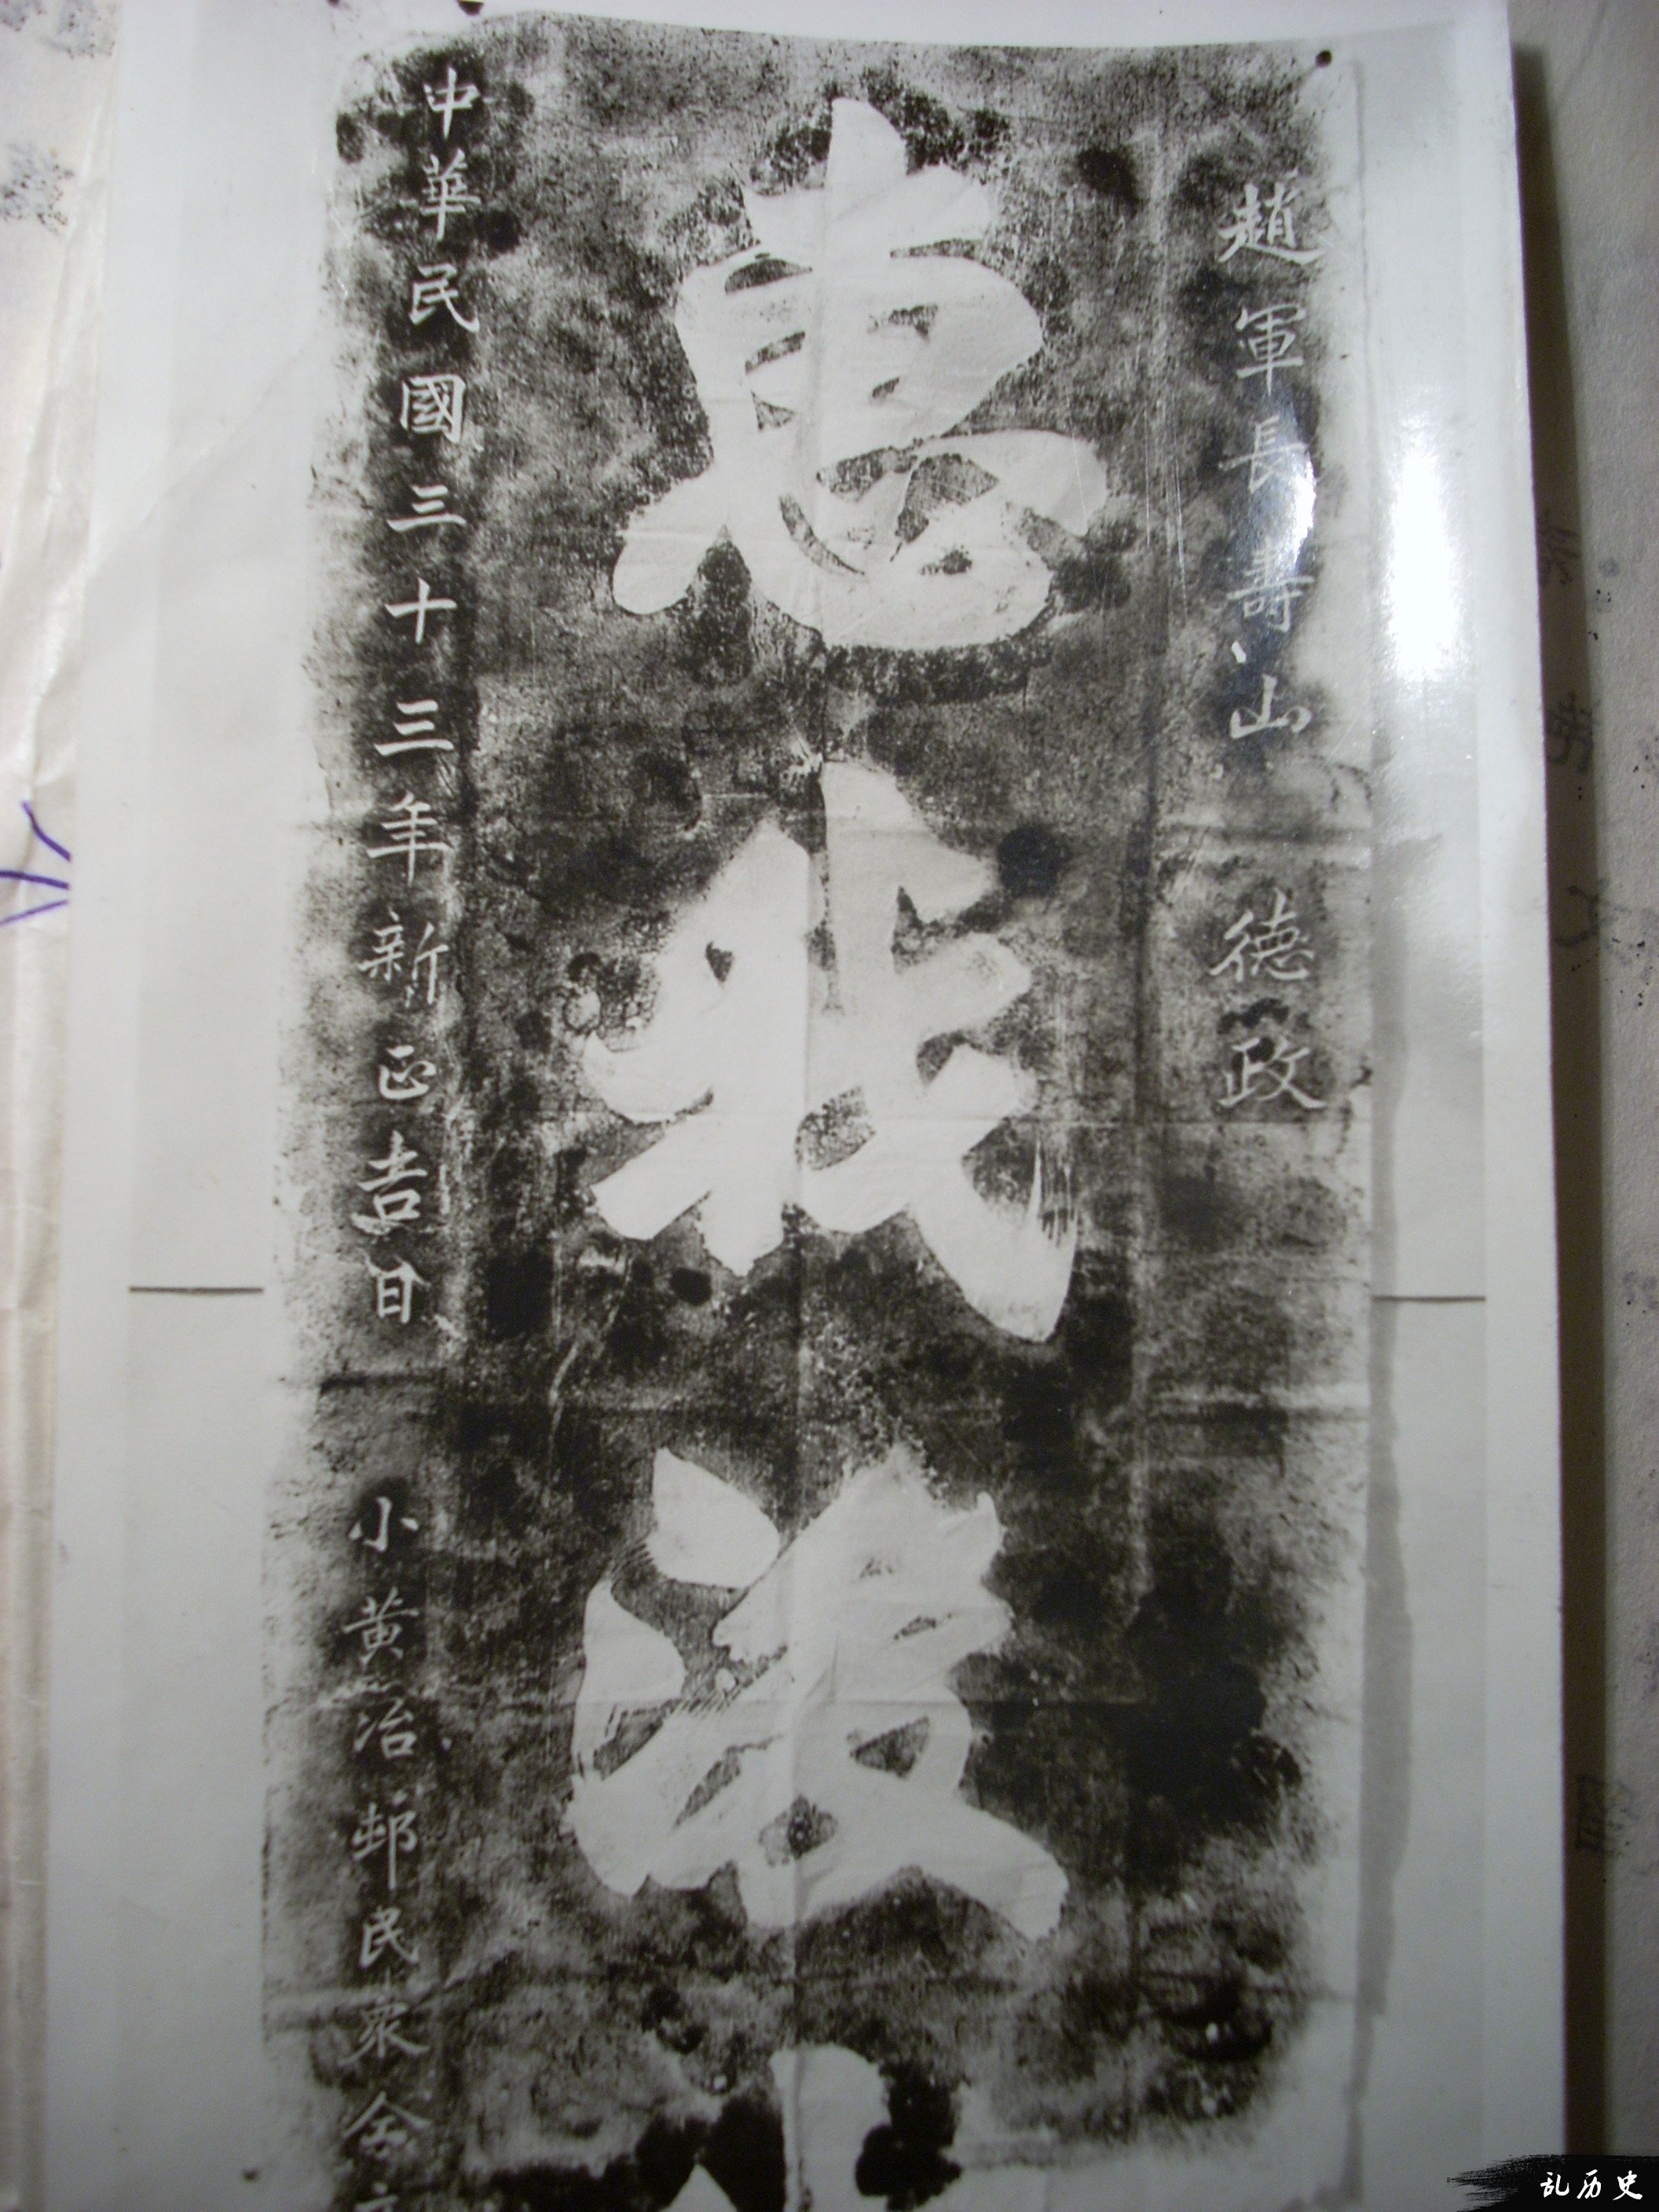 趙軍長壽山 德政
惠我
中華民國三十三年新正吉日 小黃冶邨民衆仝
乱历史